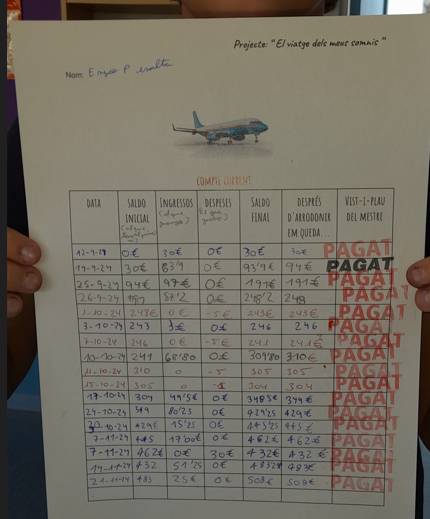 Projecte: "El viatge dels meus somnis"
Nom: Enzo P
COMPTE CORRENT
DATA SALDO INICIAL INGRESSOS DESPESES SALDO FINAL DESPRÉS D'ARRODONIR EM QUEDA... VIST-I-PLAU DEL MESTRE
12-9-24 0€ 30€ 0€ 30€ 30€ PAGAT
19-9-24 30€ 63'9 0€ 93'9€ 94€ PAGAT
25-9-24 94€ 97€ 0€ 191€ 191€ PAGAT
26-9-24 191 57'2 0€ 248'2 248 PAGAT
1-10-24 248€ 0€ -5€ 243€ 243€ PAGAT
3-10-24 243 3€ 0€ 246 246 PAGA
7-10-24 246 0€ -5€ 241 241€ PAGAT
10-10-24 241 68'80 0€ 309'80 310€ PAGAT
11-10-24 310 0 -5 305 305 PAGAT
15-10-24 305 0 -1 304 304 PAGAT
17-10-24 304 0€ 349€ PAGAT
24-10-24 349 80'25 0€ 429'25 429€ PAGAT
10-24 429€ 15'25 0€ 445€ PAGAT
7-11-24 445 17'00€ 0€ 462€ 462€ PAGAT
7-11-24 462€ 0€ 30€ 432€ 432€ PAGAT
14-11-24 432 51'25 0€ 483'25 483€ PAGAT
21-11-24 483 25€ 0€ 508€ 508€ PAGAT